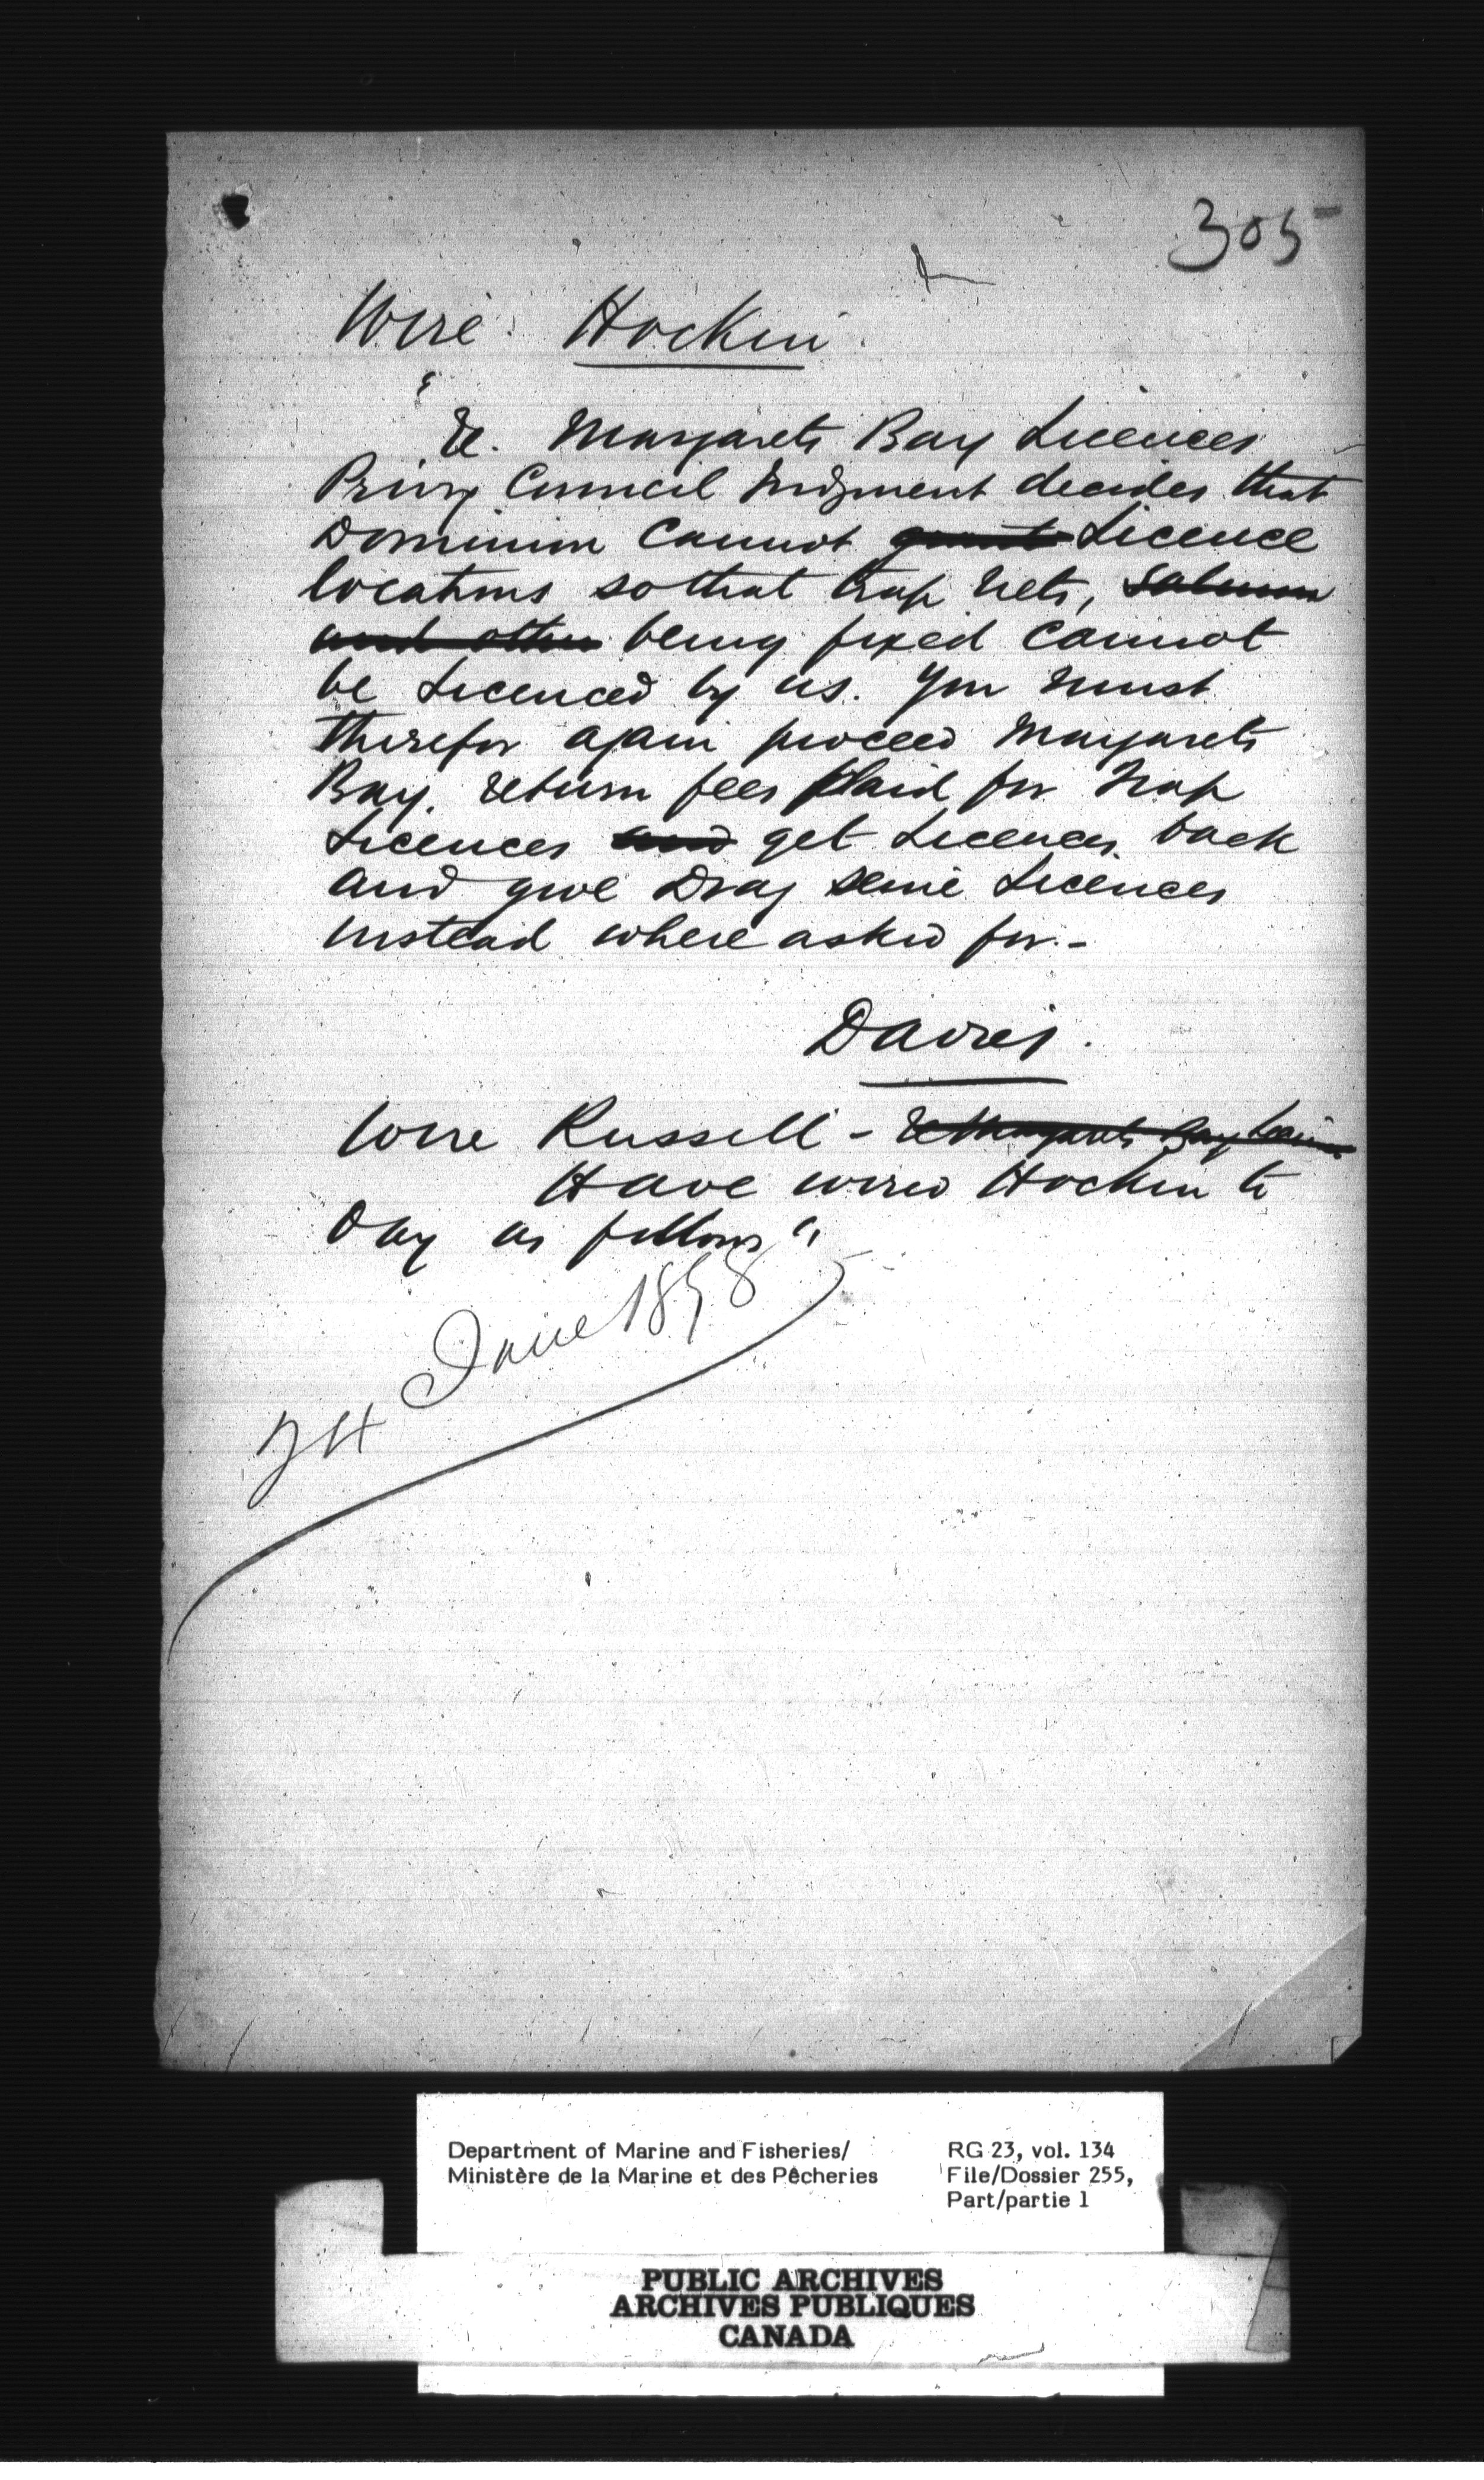 305
Wire Hockin
Re. Margarets Bay Licences
Privy Council Judgment decides that
Dominion Cannot grant Licence
locations so that trap nets, salmon
and other being fixed cannot
be Licenced by us. You must
therefor again proceed Margarets
Bay. return fees paid for Trap
Licences and get Licences back
and give Drag seine Licences
instead where asked for.-
Davies.
Wire Russell - Re Margarets Bay
Have wired Hockin to
Day as follows "
24 June 1898
Department of Marine and Fisheries/
Ministère de la Marine et des Pêcheries
RG 23, vol. 134
File/Dossier 255,
Part/partie 1
PUBLIC ARCHIVES
ARCHIVES PUBLIQUES
CANADA